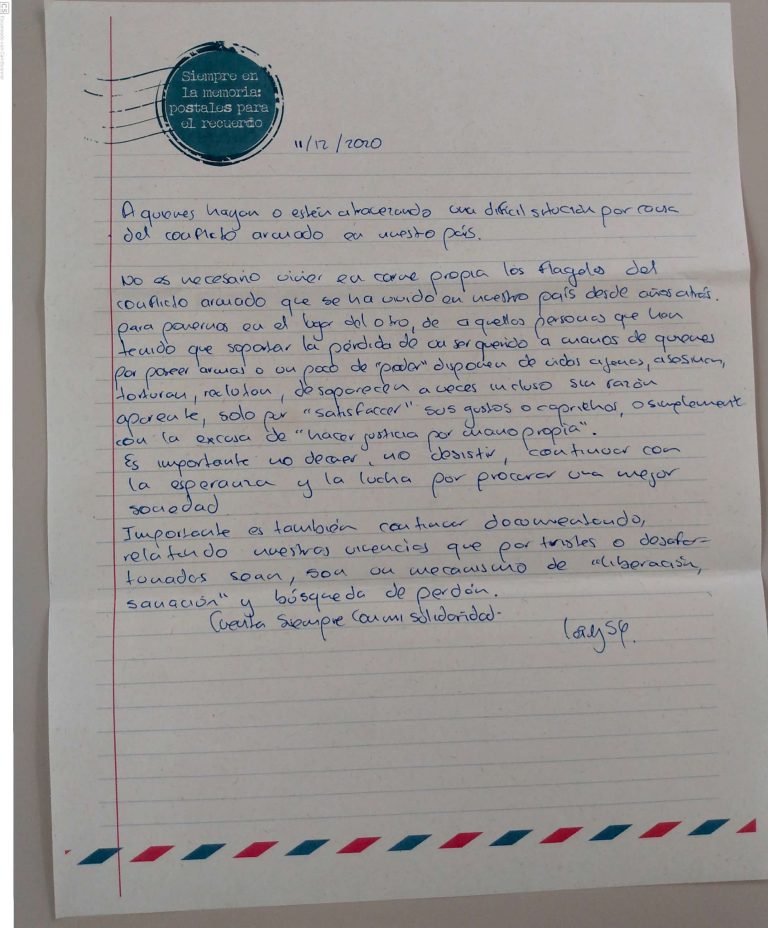 CS
Siempre en
la memoria:
postales para
el recuerdo
11/12/2020
A quienes hayan o estén atravezando una difícil situción por causa
del conflicto armado en nuestro país.
No es necesario vivier en carne propia los flagelos del
conflicto armado que se ha vivido en nuestro país desde años atrás.
para ponernos en el lugar del otro, de aquellas personas que han
tenido que soportar la pérdida de un ser querido a manos de quienes
por poseer armas o un poco de "poder" disponen de vidas ajenas, asesinan,
torturan, reclutan, desaparecen a veces incluso sin razón
aparente, solo por "satisfaccer" sus gustos o caprichos, o simplement
con la excusa de "hacer justicia por mano propia".
Es importante no decaer, no desistir, continuar con
la esperanza y la lucha por procurar una mejor
sociedad.
Importante es también continuar documentando,
relatando nuestras vivencias que por tristes o desafor-
tunadas sean, son un mecanismo de "liberación,
sanación" y búsqueda de perdón.
Cuenta siempre con mi solidaridad.